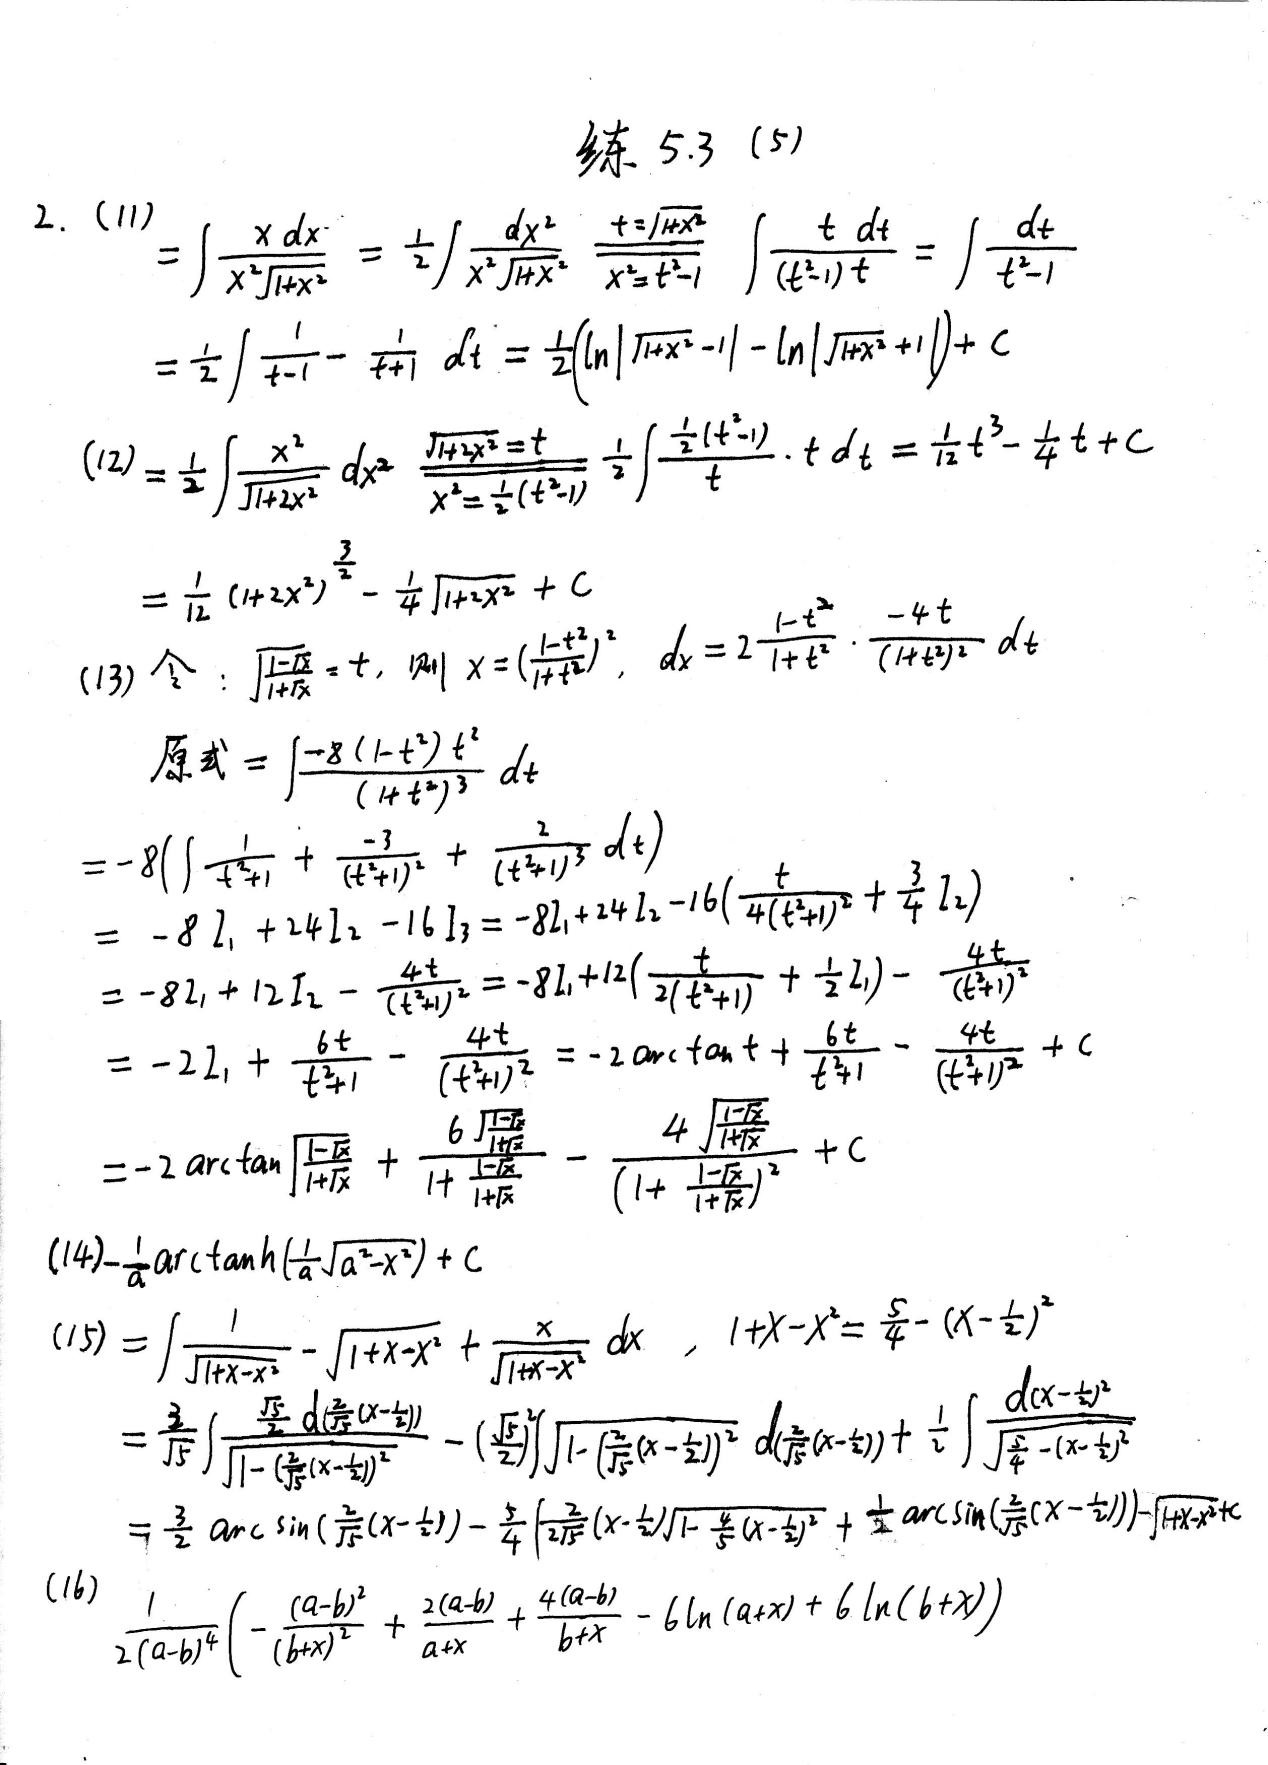 练 5.3 (5)
2. (11) = ∫ x dx / (x²√(1+x²)) = 1/2 ∫ dx² / (x²√(1+x²)) (t=√(1+x²), x²=t²-1) ∫ t dt / ((t²-1) t) = ∫ dt / (t²-1)
= 1/2 ∫ 1/(t-1) - 1/(t+1) dt = 1/2 (ln|√(1+x²) -1| - ln|√(1+x²) +1|) + C
(12) = 1/2 ∫ x²/√(1+2x²) dx² (√(1+2x²) = t, x² = 1/2 (t²-1)) 1/2 ∫ (1/2 (t²-1))/t · t dt = 1/12 t³ - 1/4 t + C
= 1/12 (1+2x²)^(3/2) - 1/4 √(1+2x²) + C
(13) 令: √((1-√x)/(1+√x)) = t, 则 x = ((1-t²)/(1+t²))², dx = 2 (1-t²)/(1+t²) · (-4t)/((1+t²)²) dt
原式 = ∫ (-8(1-t²)t²)/((1+t²)³) dt
= -8(∫ 1/(t²+1) + (-3)/((t²+1)²) + 2/((t²+1)³) dt)
= -8I₁ + 24I₂ - 16I₃ = -8I₁ + 24I₂ - 16(t/(4(t²+1)²) + 3/4 I₂)
= -8I₁ + 12I₂ - 4t/((t²+1)²) = -8I₁ + 12(t/(2(t²+1)) + 1/2 I₁) - 4t/((t²+1)²)
= -2I₁ + 6t/(t²+1) - 4t/((t²+1)²) = -2 arctan t + 6t/(t²+1) - 4t/((t²+1)²) + C
= -2 arctan √((1-√x)/(1+√x)) + (6√((1-√x)/(1+√x)))/(1+(1-√x)/(1+√x)) - (4√((1-√x)/(1+√x)))/((1+(1-√x)/(1+√x))²) + C
(14) -1/a arctanh(1/a √(a²-x²)) + C
(15) = ∫ 1/√(1+x-x²) - √(1+x-x²) + x/√(1+x-x²) dx , 1+x-x² = 5/4 - (x-1/2)²
= 3/√5 ∫ (√5/2 d(2/√5 (x-1/2)))/√(1-(2/√5 (x-1/2))²) - (√5/2)² ∫ √(1-(2/√5 (x-1/2))²) d(2/√5 (x-1/2)) + 1/2 ∫ d(x-1/2)²/√(5/4-(x-1/2)²)
= 3/2 arc sin(2/√5 (x-1/2)) - 5/4 (2/(2√5) (x-1/2)√(1-4/5 (x-1/2)²) + 1/2 arcsin(2/√5 (x-1/2))) - √(1+x-x²) + C
(16) 1/(2(a-b)⁴) (-(a-b)²/(b+x)² + 2(a-b)/(a+x) + 4(a-b)/(b+x) - 6 ln(a+x) + 6 ln(b+x))